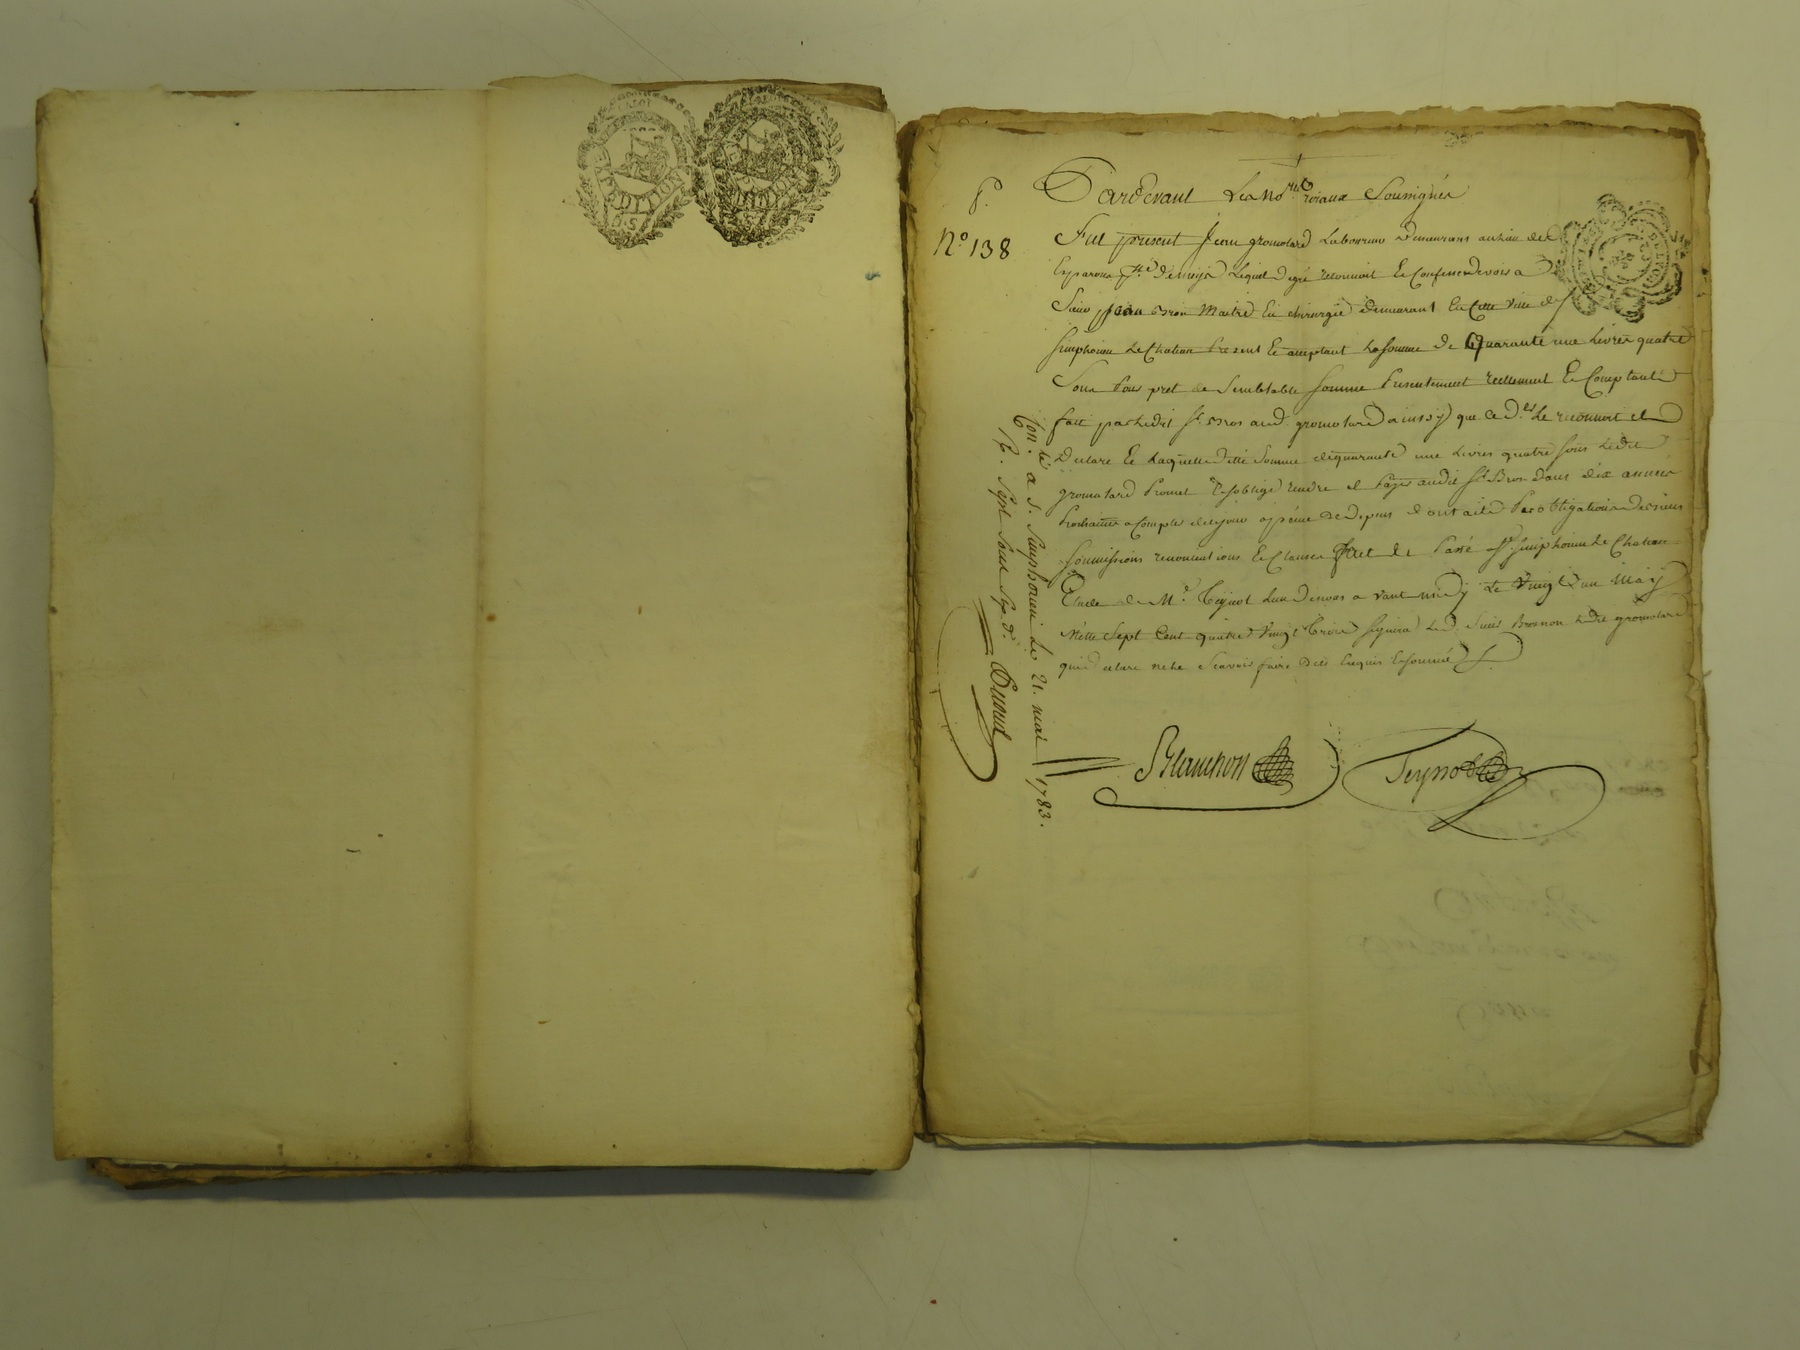 EXPEDITION
D. S.
P.
N.º 138
Pardevant Les No.res roiaux Soussignés
Fut present Jean gromolard Laboureur Demeurant au lieu de
Lequel de gré reconnoit Et Confesse devoir a
Sieur jean Bron Maitre En chirurgie demeurant En Cette ville de St
simphorien Le Chateau Present Et acceptant La Somme de Quarante une Livres quatre
Sous Pour pret de Semblable Somme Presentement reellement Et Comptant
fait par Ledit Sr Bron aud. gromolard ainssy que ce d.er Le reconnoit et
Declare Et Laquelle ditte Somme de quarante une Livres quatre Sous Ledit
gromolard Promet Et soblige rendre et Payer audit Sr Bron Dans dix années
Prochaines a Compter de ce jour a peine de depens dont acte Par obligation de biens
soumissions renonciations Et Clauses fait et Passé a St simphorien Le Chateau
Etude de Me Teynot L'un de nous avant midy Le Vingt un May
Mille Sept Cent quatre Vingt trois Le d. Sieur Bron non Ledit gromolard
qui a declaré ne le Scavoir faire De ce Enquis Et sommé
Con.lé a S. Simphorien Le 21. mai 1783.
R. Sept Sous Six d.
Blanchon
Teynot